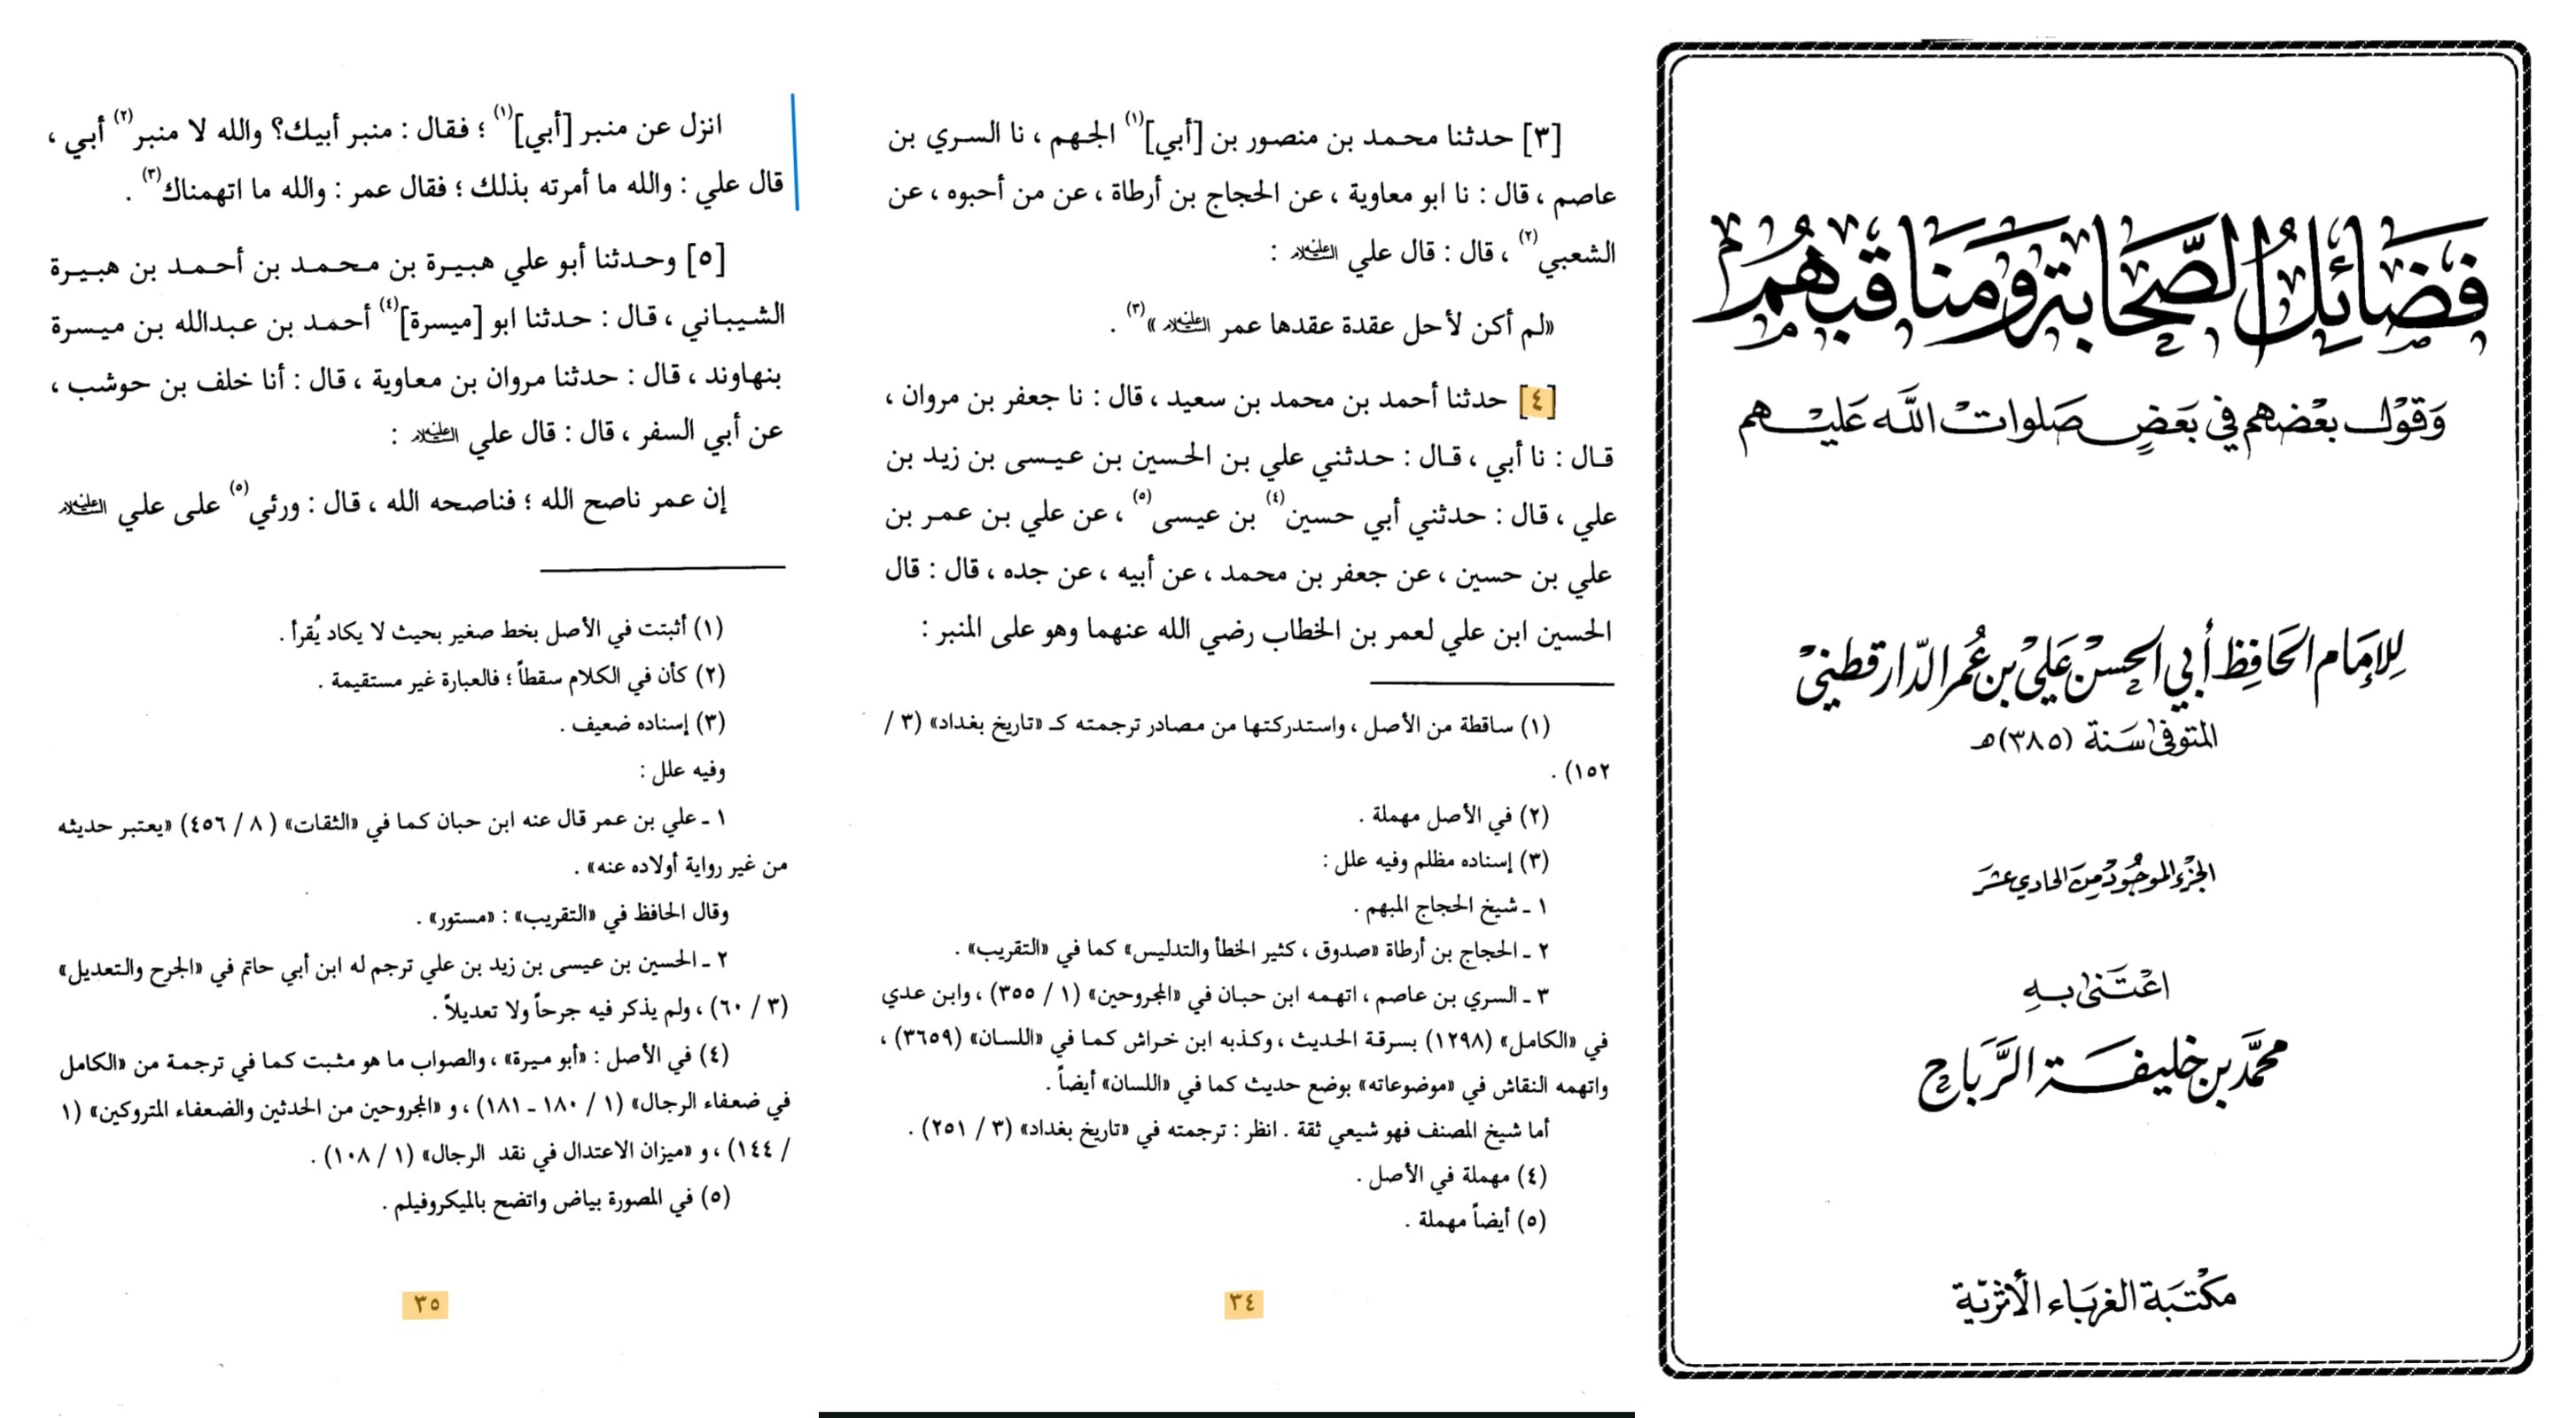 فضائل الصحابة ومناقبهم
وقول بعضهم في بعض صلوات الله عليهم
للإمام الحافظ أبي الحسن علي بن عمر الدارقطني
المتوفى سنة (٣٨٥)هـ
الجزء الموجود من الحادي عشر
اعتنى به
محمد بن خليفة الرباح
مكتبة الغرباء الأثرية
[٣] حدثنا محمد بن منصور بن [أبي](١) الجهم ، نا السري بن
عاصم ، قال : نا ابو معاوية ، عن الحجاج بن أرطاة ، عن من أحبوه ، عن
الشعبي(٢) ، قال : قال علي عليه السلام :
«لم أكن لأحل عقدة عقدها عمر عليه السلام»(٣) .
[٤] حدثنا أحمد بن محمد بن سعيد ، قال : نا جعفر بن مروان ،
قال : نا أبي ، قال : حدثني علي بن الحسين بن عيسى بن زيد بن
علي ، قال : حدثني أبي حسين(٤) بن عيسى(٥) ، عن علي بن عمر بن
علي بن حسين ، عن جعفر بن محمد ، عن أبيه ، عن جده ، قال : قال
الحسين ابن علي لعمر بن الخطاب رضي الله عنهما وهو على المنبر :
(١) ساقطة من الأصل ، واستدركتها من مصادر ترجمته كـ «تاريخ بغداد» (٣ /
١٥٢) .
(٢) في الأصل مهملة .
(٣) إسناده مظلم وفيه علل :
١ ـ شيخ الحجاج المبهم .
٢ ـ الحجاج بن أرطاة «صدوق ، كثير الخطأ والتدليس» كما في «التقريب» .
٣ ـ السري بن عاصم ، اتهمه ابن حبان في «المجروحين» (١ / ٣٥٥) ، وابن عدي
في «الكامل» (١٢٩٨) بسرقة الحديث ، وكذبه ابن خراش كما في «اللسان» (٣٦٥٩) ،
واتهمه النقاش في «موضوعاته» بوضع حديث كما في «اللسان» أيضاً .
أما شيخ المصنف فهو شيعي ثقة . انظر : ترجمته في «تاريخ بغداد» (٣ / ٢٥١) .
(٤) مهملة في الأصل .
(٥) أيضاً مهملة .
٣٤
انزل عن منبر [أبي](١) ؛ فقال : منبر أبيك؟ والله لا منبر(٢) أبي ،
قال علي : والله ما أمرته بذلك ؛ فقال عمر : والله ما اتهمناك(٣) .
[٥] وحدثنا أبو علي هبيرة بن محمد بن أحمد بن هبيرة
الشيباني ، قال : حدثنا ابو [ميسرة](٤) أحمد بن عبدالله بن ميسرة
بنهاوند ، قال : حدثنا مروان بن معاوية ، قال : أنا خلف بن حوشب ،
عن أبي السفر ، قال : قال علي عليه السلام :
إن عمر ناصح الله ؛ فناصحه الله ، قال : ورئي(٥) على علي عليه السلام
(١) أثبتت في الأصل بخط صغير بحيث لا يكاد يُقرأ .
(٢) كأن في الكلام سقطاً ؛ فالعبارة غير مستقيمة .
(٣) إسناده ضعيف .
وفيه علل :
١ ـ علي بن عمر قال عنه ابن حبان كما في «الثقات» (٨ / ٤٥٦) «يعتبر حديثه
من غير رواية أولاده عنه» .
وقال الحافظ في «التقريب» : «مستور» .
٢ ـ الحسين بن عيسى بن زيد بن علي ترجم له ابن أبي حاتم في «الجرح والتعديل»
(٣ / ٦٠) ، ولم يذكر فيه جرحاً ولا تعديلاً .
(٤) في الأصل : «أبو ميرة» ، والصواب ما هو مثبت كما في ترجمة من «الكامل
في ضعفاء الرجال» (١ / ١٨٠ ـ ١٨١) ، و «المجروحين من الحدثين والضعفاء المتروكين» (١
/ ١٤٤) ، و «ميزان الاعتدال في نقد الرجال» (١ / ١٠٨) .
(٥) في المصورة بياض واتضح بالميكروفيلم .
٣٥